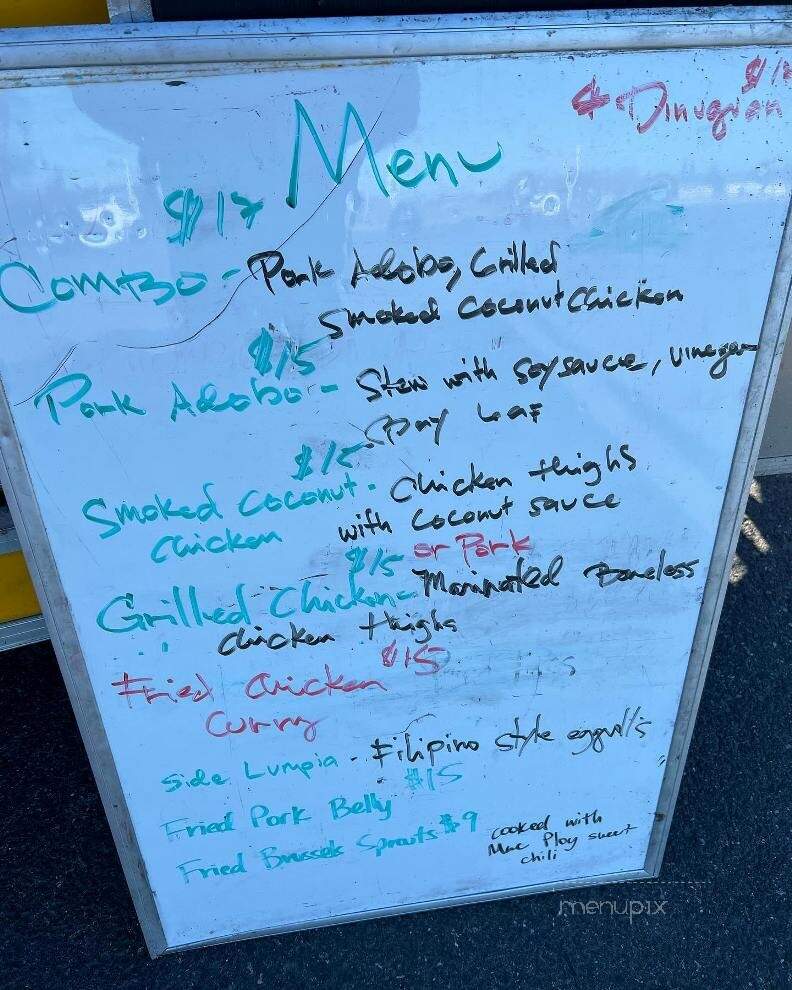 Menu
* Dinuguan
$17
Combo - Pork Adobo, Grilled
Smoked Coconut Chicken
$15
Pork Adobo - Stew with soy sauce, vinegar
Bay Leaf
$15
Smoked Coconut - Chicken thighs
Chicken with coconut sauce
$15 or Pork
Grilled Chicken - Marinated Boneless
chicken thighs
$15
Fried Chicken
Curry
Side Lumpia - Filipino style eggrolls
$15
Fried Pork Belly
Fried Brussels Sprouts $9 cooked with
Mae Ploy sweet
chili
menupix